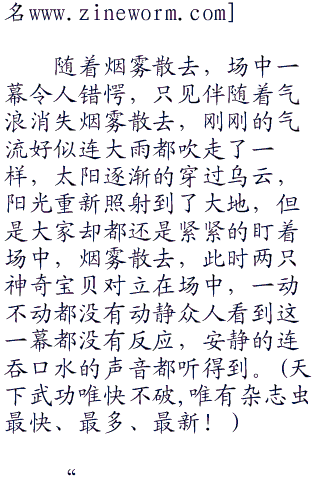 名www.zineworm.com]
随着烟雾散去，场中一
幕令人错愕，只见伴随着气
浪消失烟雾散去，刚刚的气
流好似连大雨都吹走了一
样，太阳逐渐的穿过乌云，
阳光重新照射到了大地，但
是大家却都还是紧紧的盯着
场中，烟雾散去，此时两只
神奇宝贝对立在场中，一动
不动都没有动静众人看到这
一幕都没有反应，安静的连
吞口水的声音都听得到。(天
下武功唯快不破,唯有杂志虫
最快、最多、最新！)
“